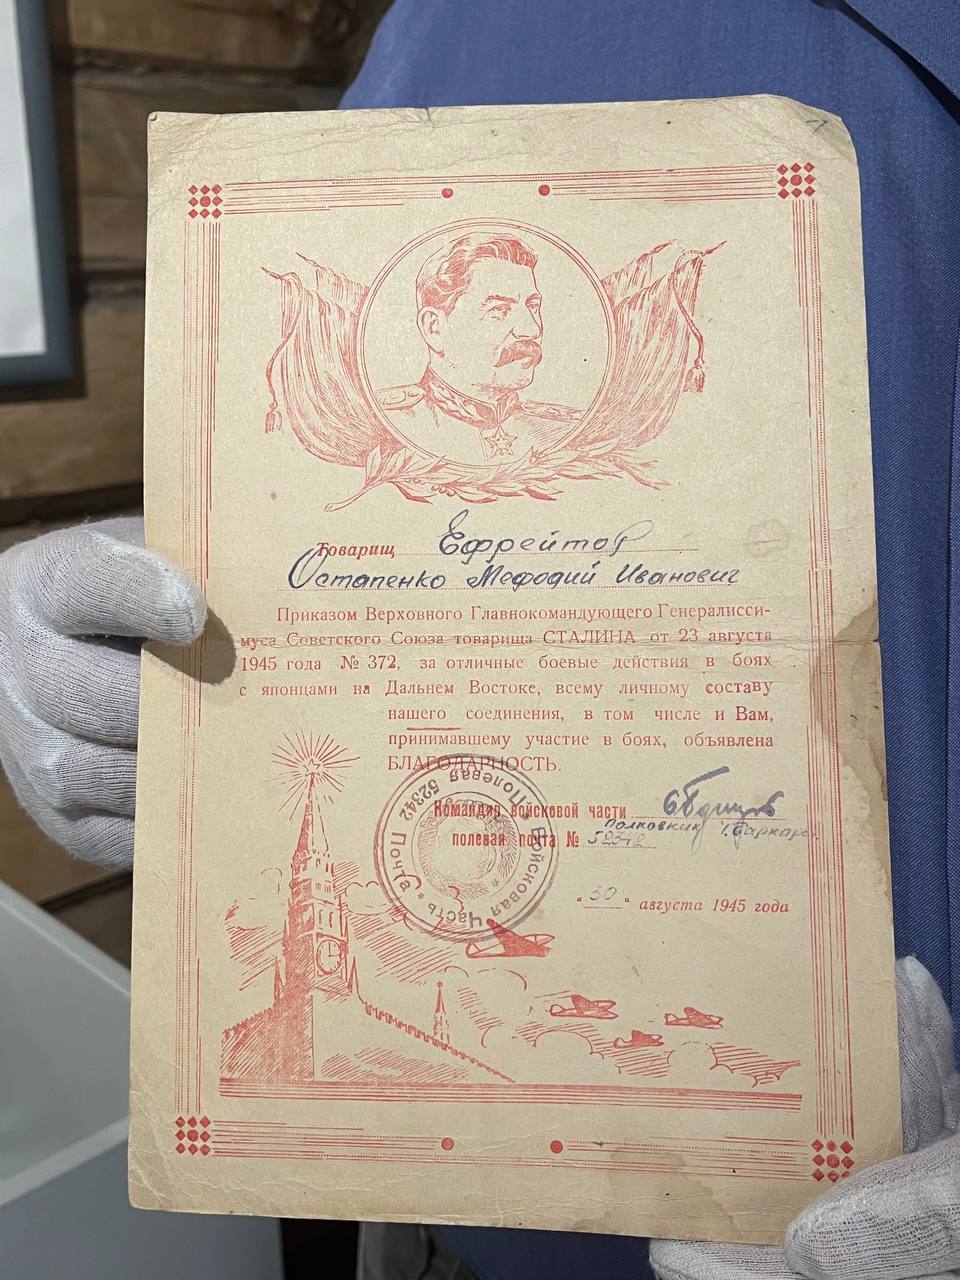 Товарищ Ефрейтор
Остапенко Мефодий Иванович
Приказом Верховного Главнокомандующего Генералисси-
муса Советского Союза товарища СТАЛИНА от 23 августа
1945 года № 372, за отличные боевые действия в боях
с японцами на Дальнем Востоке, всему личному составу
нашего соединения, в том числе и Вам,
принимавшему участие в боях, объявлена
БЛАГОДАРНОСТЬ.
Командир войсковой части
полковник
полевая почта № 52342
Войсковая Часть • Полевая Почта 52342
"30" августа 1945 года